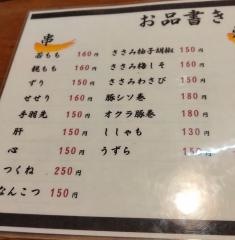 お品書き
串
若もも 160円
親もも 160円
ずり 150円
せせり 160円
手羽先 150円
肝 150円
心 150円
つくね 250円
なんこつ 150円
ささみ柚子胡椒 150円
ささみ梅しそ 160円
ささみわさび 150円
豚シソ巻 180円
オクラ豚巻 180円
ししゃも 130円
うずら 150円